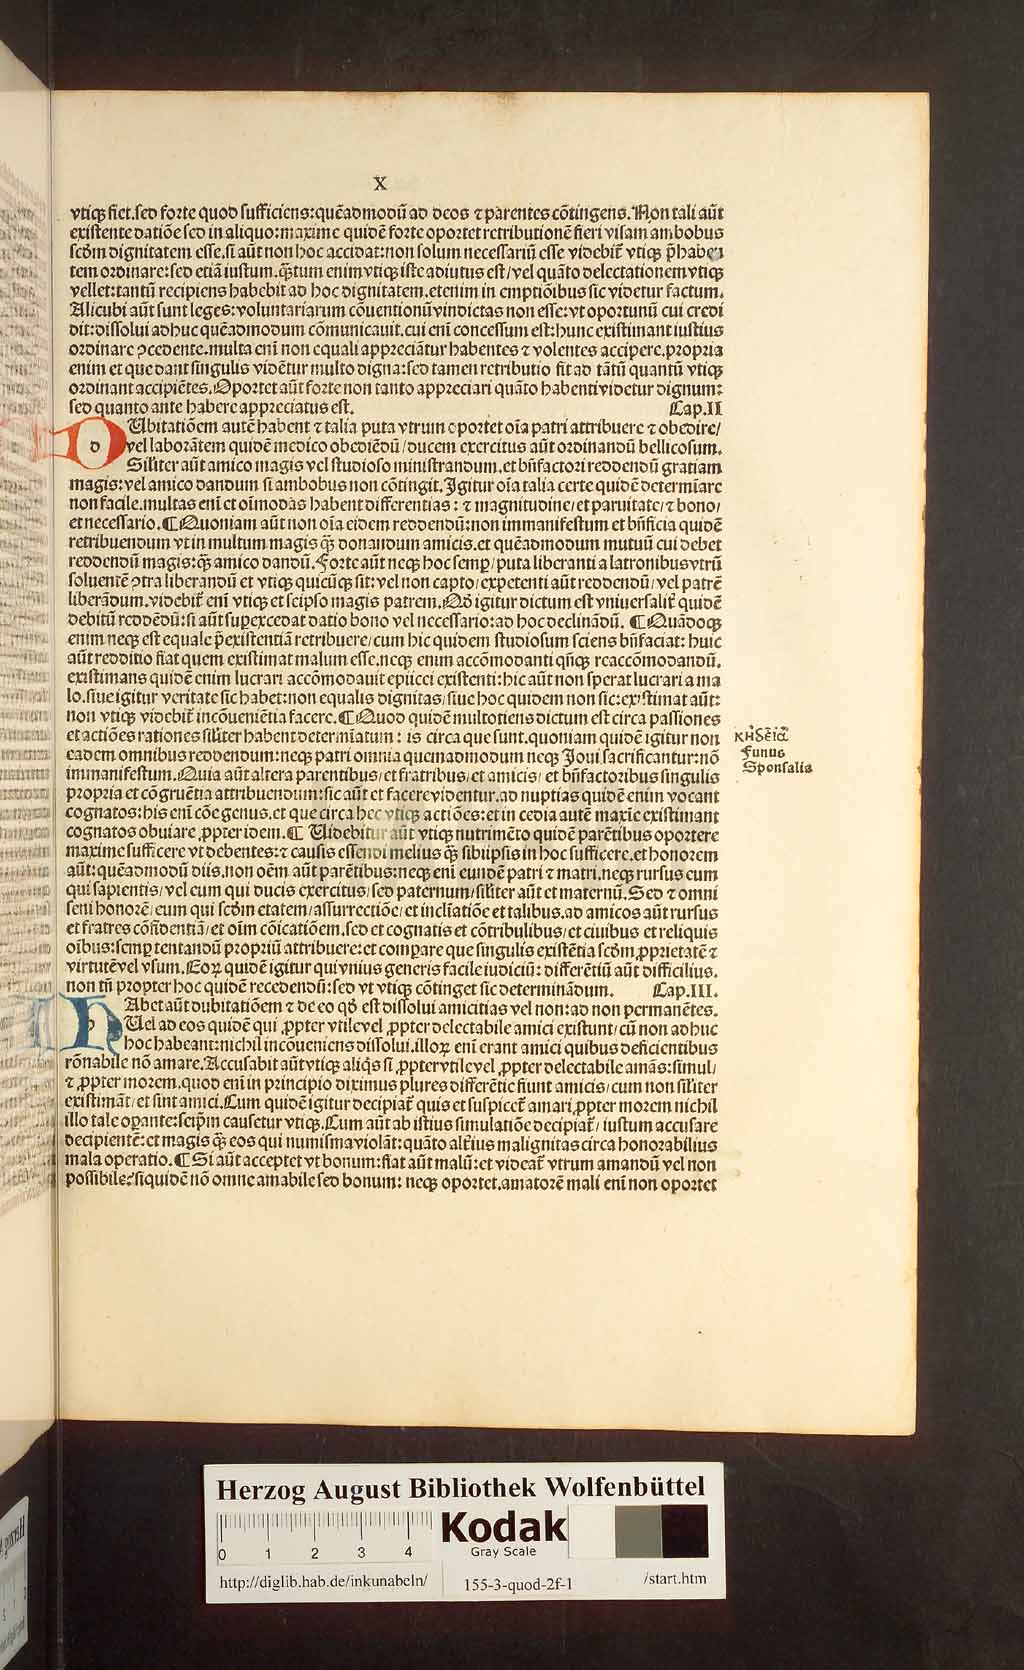 X
vtiqꝫ fiet.sed forte quod sufficiens:quēadmodū ad deos ⁊ parentes cōtingens. Non tali aūt
existente datiōe sed in aliquo:maxime quidē forte oportet retributionē fieri visam ambobus
scd̄m dignitatem esse.si aūt non hoc accidat:non solum necessariū esse videbit̄ vtiqꝫ p̄haben
tem ordinare:sed etiā iustum.q̄ꝫtum enim vtiqꝫ iste adiutus est/vel quāto delectationem vtiqꝫ
vellet:tantū recipiens habebit ad hoc dignitatem.etenim in emptiōibus sic videtur factum.
Alicubi aūt sunt leges:voluntariarum cōuentionū vindictas non esse:vt oportunū cui credi
dit:dissolui adhuc quēadmodum cōmunicauit.cui enī concessum est:hunc existimant iustius
ordinare ꝯcedente.multa enī non equali appreciātur habentes ⁊ volentes accipere.propria
enim et que dant singulis vidētur multo digna:sed tamen retributio fit ad tātū quantū vtiqꝫ
ordinant accipiētes.Oportet aūt forte non tanto appreciari quāto habenti videtur dignum:
sed quanto ante habere appreciatus est. Cap.II
d Ubitatiōem autē habent ⁊ talia puta vtrum oportet oīa patri attribuere ⁊ obedire/
vel laborātem quidē medico obediēdū/ducem exercitus aūt ordinandū bellicosum.
Silīter aūt amico magis vel studioso ministrandum.et bn̄factori reddendū gratiam
magis:vel amico dandum si ambobus non cōtingit.Igitur oīa talia certe quidē determīare
non facile.multas enī et oīmodas habent differentias: ⁊ magnitudine/et paruitate/⁊ bono/
et necessario.¶Quoniam aūt non oīa eidem reddendū:non immanifestum et bn̄ficia quidē
retribuendum vt in multum magis q̄ꝫ donandum amicis.et quēadmodum mutuū cui debet
reddendū magis:q̄ꝫ amico dandū.Forte aūt neqꝫ hoc semꝑ/puta liberanti a latronibus vtrū
soluentē ꝯtra liberandū et vtiqꝫ quicūqꝫ sit:vel non capto/expetenti aūt reddendū/vel patrē
liberādum.videbit̄ enī vtiqꝫ et seipso magis patrem.Qd̄ igitur dictum est vniuersalit̄ quidē
debitū reddēdū:si aūt suꝑexcedat datio bono vel necessario:ad hoc declinādū. ¶Quādoqꝫ
enim neqꝫ est equale p̄existentiā retribuere/cum hic quidem studiosum sciens bn̄faciat: huic
aūt redditio fiat quem existimat malum esse.neqꝫ enim accōmodanti qn̄qꝫ reaccōmodandū.
existimans quidē enim lucrari accōmodauit epiicei existenti:hic aūt non sperat lucrari a ma
lo.siue igitur veritate sic habet:non equalis dignitas/siue hoc quidem non sic:existimat aūt:
non vtiqꝫ videbit̄ incōueniētia facere.¶Quod quidē multotiens dictum est circa passiones
et actiōes rationes silīter habent determīatum: is circa que sunt.quoniam quidē igitur non
eadem omnibus reddendum:neqꝫ patri omnia quemadmodum neqꝫ Ioui sacrificantur:nō
immanifestum.Quia aūt altera parentibus/et fratribus/et amicis/et bn̄factoribus singulis
propria et cōgruētia attribuendum:sic aūt et facere videntur.ad nuptias quidē enim vocant
cognatos:his enī cōe genus.et que circa hec vtiqꝫ actiōes:et in cedia autē maxīe existimant
cognatos obuiare ꝓpter idem.¶ Uidebitur aūt vtiqꝫ nutrimēto quidē parētibus oportere
maxime sufficere vt debentes:⁊ causis essendi melius q̄ꝫ sibiipsis in hoc sufficere.et honorem
aūt:quēadmodū diis.non oēm aūt parētibus:neqꝫ enī eundē patri ⁊ matri.neqꝫ rursus eum
qui sapientis/vel eum qui ducis exercitus/sed paternum/silīter aūt et maternū.Sed ⁊ omni
seni honorē/eum qui scd̄m etatem/assurrectiōe/et inclīatiōe et talibus.ad amicos aūt rursus
et fratres cōfidentiā/et oīm cōicatiōem.sed et cognatis et cōtribulibus/et ciuibus et reliquis
oībus:semꝑ tentandū propriū attribuere:et comꝑare que singulis existētia scd̄m ꝓprietatē ⁊
virtutē vel vsum.Eoꝝ quidē igitur qui vnius generis facile iudiciū: differētiū aūt difficilius.
non tn̄ propter hoc quidē recedendū:sed vt vtiqꝫ cōtinget sic determinādum. Cap.III.
h Abet aūt dubitatiōem ⁊ de eo qd̄ est dissolui amicitias vel non:ad non permanētes.
Uel ad eos quidē qui ꝓpter vtile vel ꝓpter delectabile amici existunt/cū non adhuc
hoc habeant:nichil incōueniens dissolui.illoꝝ enī erant amici quibus deficientibus
rōnabile nō amare.Accusabit aūt vtiqꝫ aliq̄s si ꝓpter vtile vel ꝓpter delectabile amās:simul/
⁊ ꝓpter morem.quod enī in principio diximus plures differētie fiunt amicis/cum non silīter
existimāt/et sint amici.Cum quidē igitur decipiat̄ quis et suspicet̄ amari ꝓpter morem nichil
illo tale oꝑante:seip̄m causetur vtiqꝫ.Cum aūt ab istius simulatiōe decipiat̄/iustum accusare
decipientē:et magis q̄ꝫ eos qui numisma violāt:quāto alt̄ius malignitas circa honorabilius
mala operatio.¶Si aūt acceptet vt bonum:fiat aūt malū:et videat̄ vtrum amandū vel non
possibile?siquidē nō omne amabile sed bonum: neqꝫ oportet.amatorē mali enī non oportet
κηδεία
Funus
Sponsalia
Herzog August Bibliothek Wolfenbüttel
0 1 2 3 4
Kodak
Gray Scale
http://diglib.hab.de/inkunabeln/ 155-3-quod-2f-1 /start.htm